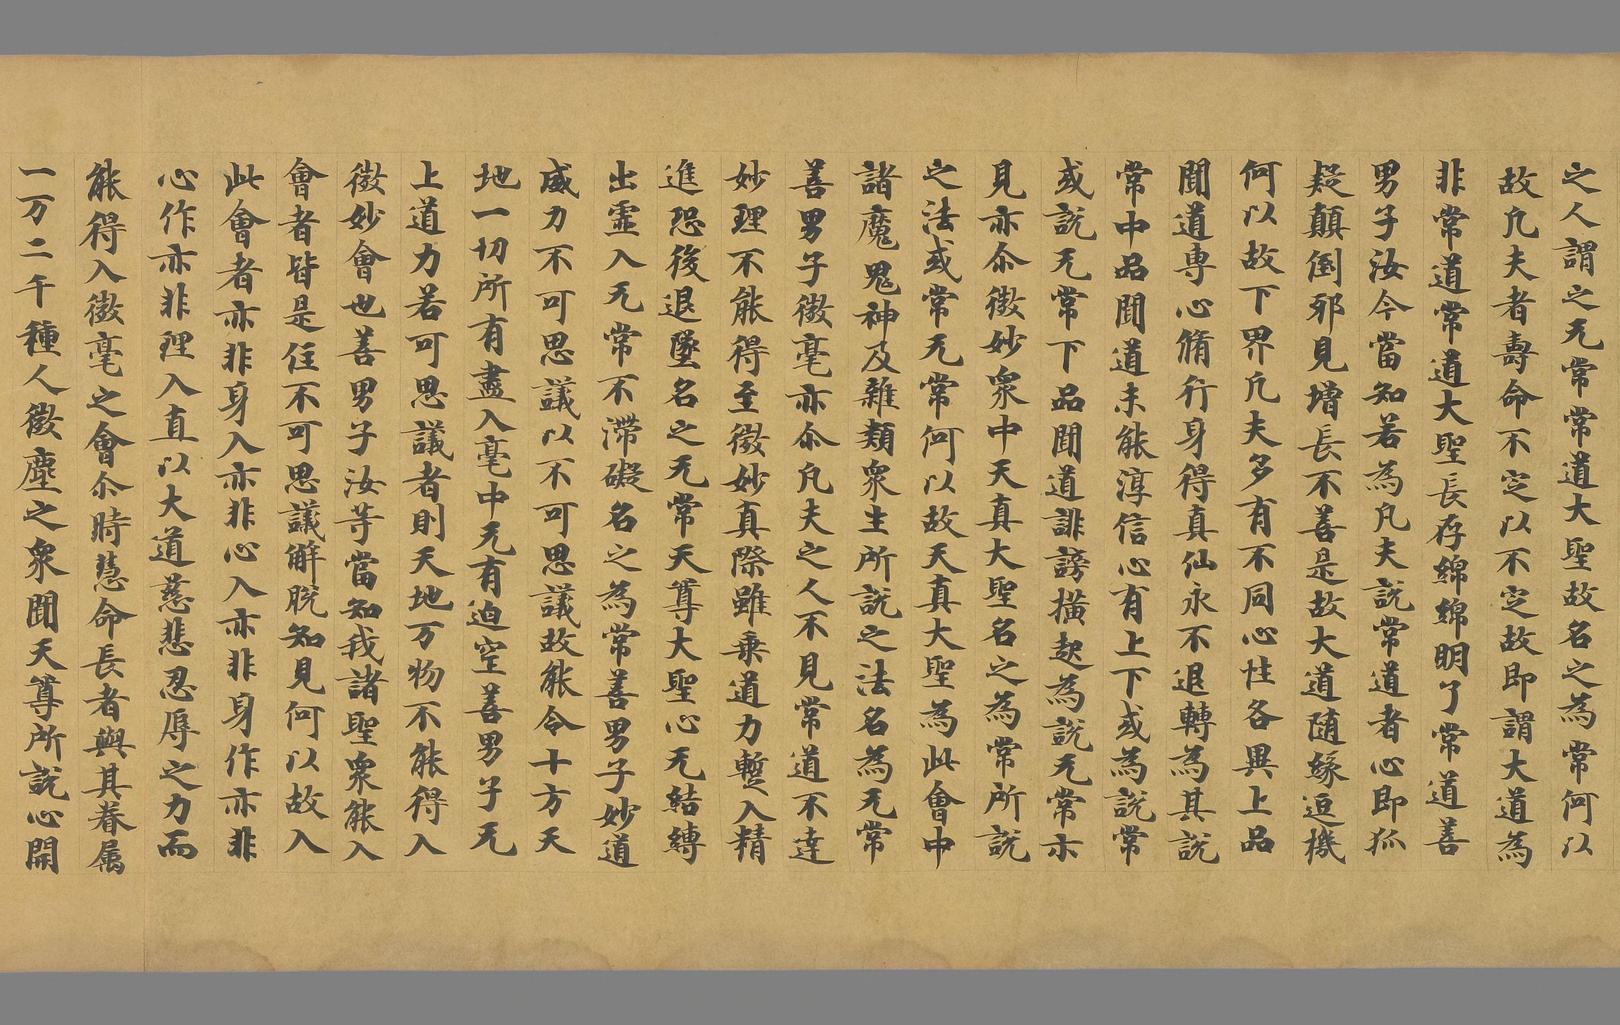 之人謂之无常常道大聖故名之為常何以
故凡夫者壽命不定以不定故即謂大道為
非常道常道大聖長存綿綿明了常道善
男子汝今當知若為凡夫說常道者心即狐
疑顛倒邪見增長不善是故大道随緣逗機
何以故下界凡夫多有不同心性各異上品
聞道専心脩行身得真仙永不退轉為其說
常中品聞道未能淳信心有上下或為說常
或說无常下品聞道誹謗橫起為說无常亦
見亦尒微妙衆中天真大聖名之為常所說
之法或常无常何以故天真大聖為此會中
諸魔鬼神及雜類衆生所說之法名為无常
善男子微毫亦尒凡夫之人不見常道不達
妙理不能得至微妙真際雖乗道力蹔入精
進恐後退墜名之无常天尊大聖心无結縛
出靈入无常不滯礙名之為常善男子妙道
威力不可思議以不可思議故能令十方天
地一切所有盡入毫中无有迫窄善男子无
上道力若可思議者則天地万物不能得入
微妙會也善男子汝等當知我諸聖衆能入
會者皆是住不可思議解脫知見何以故入
此會者亦非身入亦非心入亦非身作亦非
心作亦非理入直以大道慈悲忍辱之力而
能得入微毫之會尒時慧命長者與其眷属
一万二千種人微塵之衆聞天尊所說心開